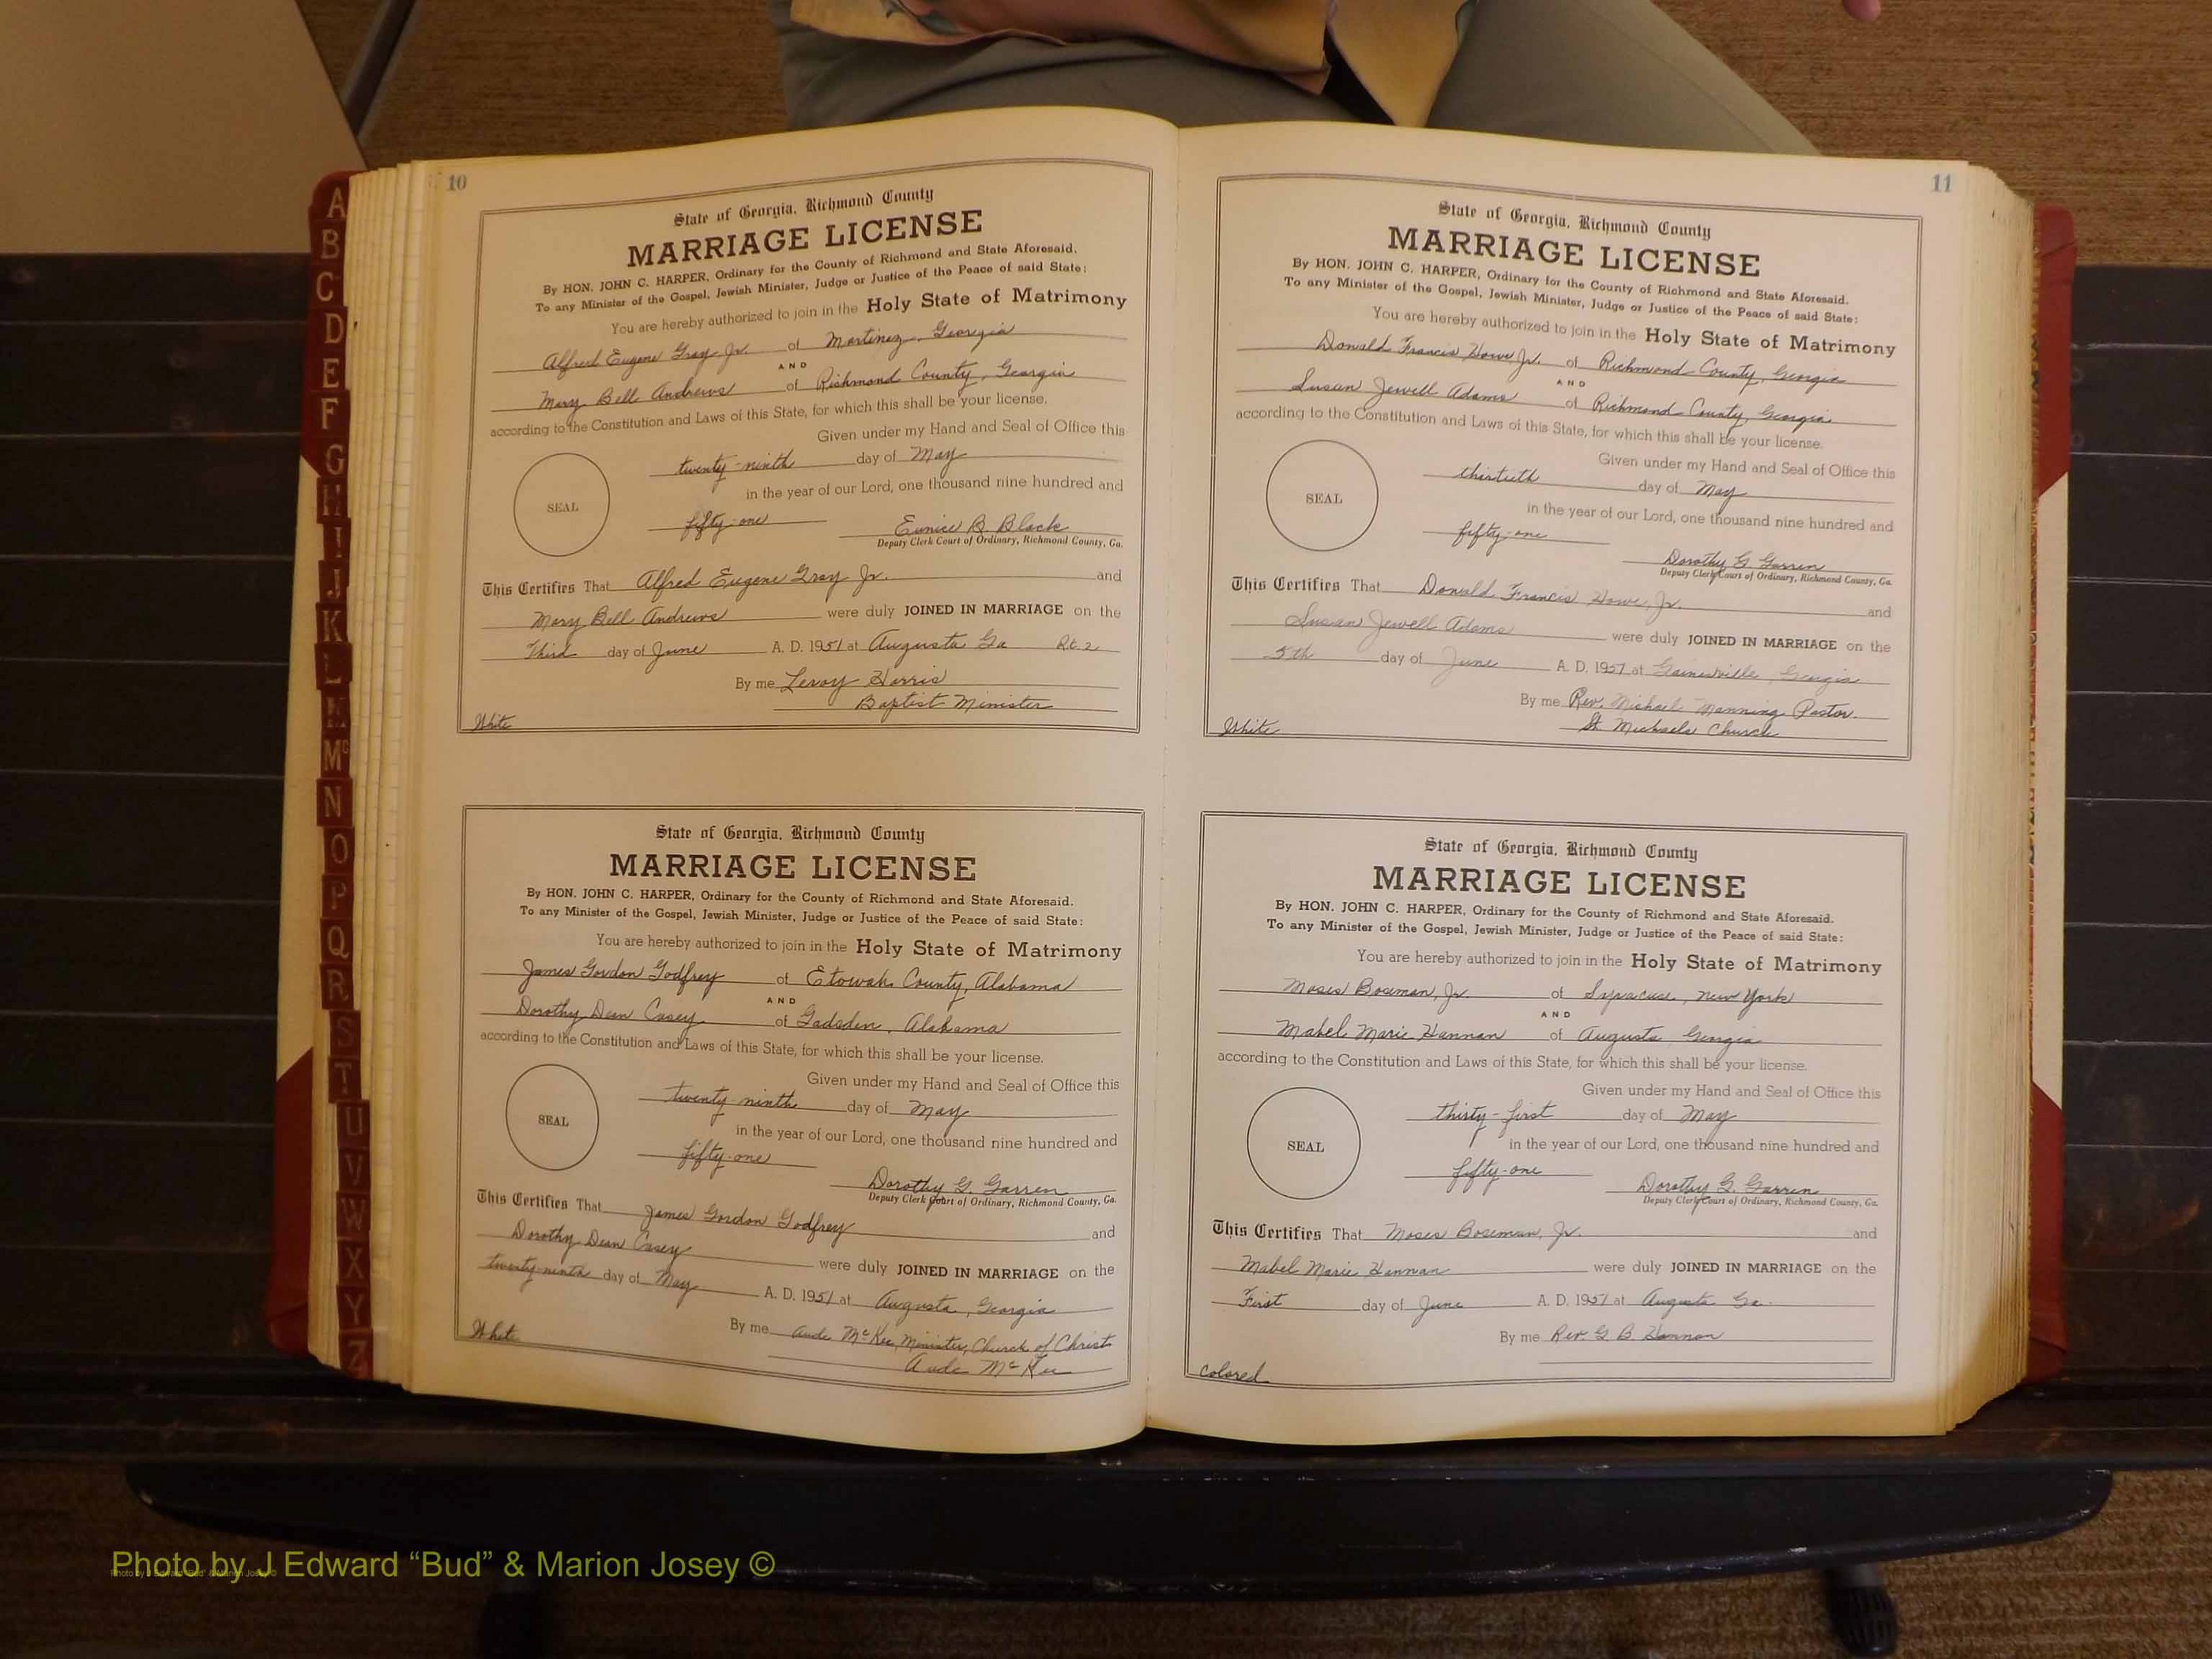 10
State of Georgia, Richmond County
MARRIAGE LICENSE
By HON. JOHN C. HARPER, Ordinary for the County of Richmond and State Aforesaid.
To any Minister of the Gospel, Jewish Minister, Judge or Justice of the Peace of said State:
You are hereby authorized to join in the Holy State of Matrimony
Alfred Eugene Gray Jr. of Martinez, Georgia
AND
Mary Bell Andrews of Richmond County, Georgia
according to the Constitution and Laws of this State, for which this shall be your license.
Given under my Hand and Seal of Office this
twenty-ninth day of May
in the year of our Lord, one thousand nine hundred and
SEAL
fifty-one Eunice B Black
Deputy Clerk Court of Ordinary, Richmond County, Ga.
This Certifies That Alfred Eugene Gray Jr. and
Mary Bell Andrews were duly JOINED IN MARRIAGE on the
Third day of June A. D. 1951 at Augusta Ga Rt. 2
By me Leroy Harris
Baptist Minister
White
State of Georgia, Richmond County
MARRIAGE LICENSE
By HON. JOHN C. HARPER, Ordinary for the County of Richmond and State Aforesaid.
To any Minister of the Gospel, Jewish Minister, Judge or Justice of the Peace of said State:
You are hereby authorized to join in the Holy State of Matrimony
James Gordon Godfrey of Etowah County, Alabama
AND
Dorothy Dean Casey of Gadsden, Alabama
according to the Constitution and Laws of this State, for which this shall be your license.
Given under my Hand and Seal of Office this
twenty-ninth day of May
SEAL
in the year of our Lord, one thousand nine hundred and
fifty-one Dorothy G. Garren
Deputy Clerk Court of Ordinary, Richmond County, Ga.
This Certifies That James Gordon Godfrey and
Dorothy Dean Casey were duly JOINED IN MARRIAGE on the
twenty-ninth day of May A. D. 1951 at Augusta, Georgia
By me Aude McKee, Minister, Church of Christ
Aude McKee
White
11
State of Georgia, Richmond County
MARRIAGE LICENSE
By HON. JOHN C. HARPER, Ordinary for the County of Richmond and State Aforesaid.
To any Minister of the Gospel, Jewish Minister, Judge or Justice of the Peace of said State:
You are hereby authorized to join in the Holy State of Matrimony
Donald Francis Howe Jr. of Richmond County, Georgia
AND
Susan Jewell Adams of Richmond County, Georgia
according to the Constitution and Laws of this State, for which this shall be your license.
Given under my Hand and Seal of Office this
thirtieth day of May
SEAL
in the year of our Lord, one thousand nine hundred and
fifty-one Dorothy G. Garren
Deputy Clerk Court of Ordinary, Richmond County, Ga.
This Certifies That Donald Francis Howe, Jr. and
Susan Jewell Adams were duly JOINED IN MARRIAGE on the
5th day of June A. D. 1951 at Gainesville, Georgia
By me Rev. Michael Manning Pastor.
St. Michaels Church
White
State of Georgia, Richmond County
MARRIAGE LICENSE
By HON. JOHN C. HARPER, Ordinary for the County of Richmond and State Aforesaid.
To any Minister of the Gospel, Jewish Minister, Judge or Justice of the Peace of said State:
You are hereby authorized to join in the Holy State of Matrimony
Moses Boseman, Jr. of Syracuse, New York
AND
Mabel Marie Hannan of Augusta, Georgia
according to the Constitution and Laws of this State, for which this shall be your license.
Given under my Hand and Seal of Office this
thirty-first day of May
SEAL
in the year of our Lord, one thousand nine hundred and
fifty-one Dorothy G. Garren
Deputy Clerk Court of Ordinary, Richmond County, Ga.
This Certifies That Moses Boseman, Jr. and
Mabel Marie Hannan were duly JOINED IN MARRIAGE on the
First day of June A. D. 1951 at Augusta Ga.
By me Rev. G B Hannan
Colored
A
B
C
D
E
F
G
H
I
J
K
L
M
Mc
N
O
P
Q
R
S
T
U
V
W
X
Y
Z
Photo by J Edward “Bud” & Marion Josey ©
Photo by J Edward “Bud” & Marion Josey ©